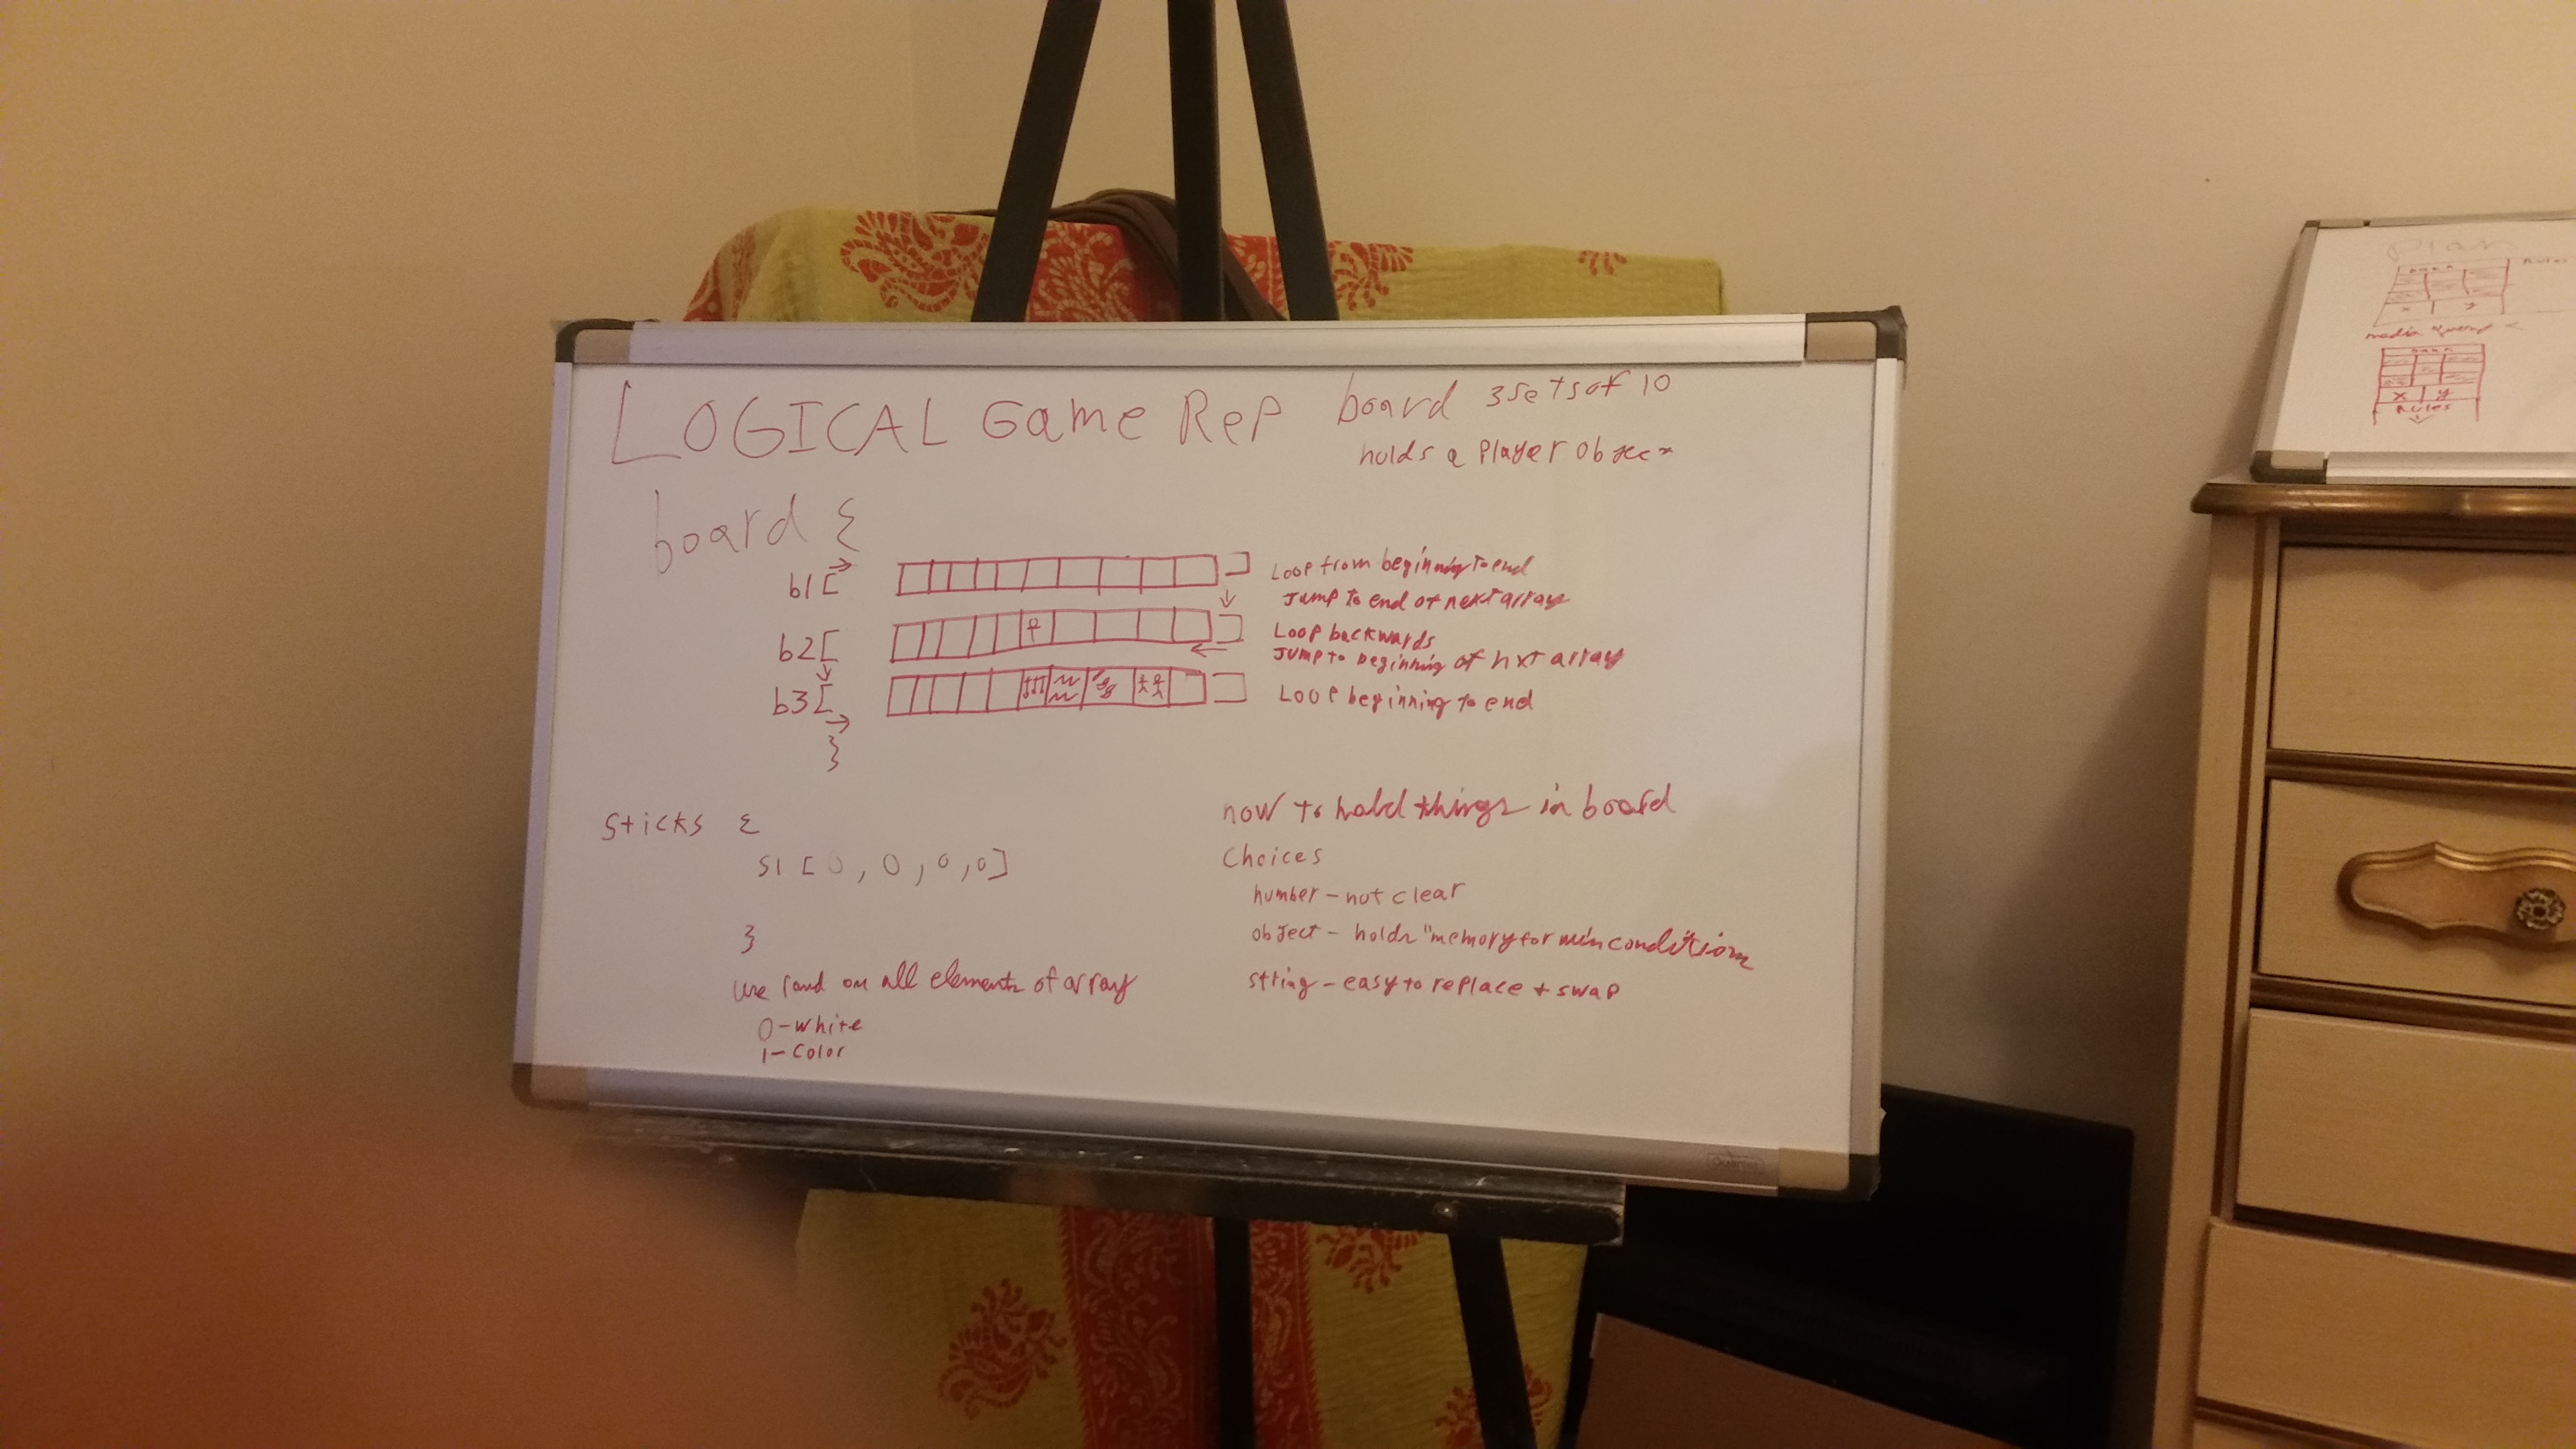 LOGICAL Game Rep
board 3 sets of 10
holds a Player Object
board {
b1[ ] Loop from beginning to end
Jump to end of next array
b2[ ] Loop backwards
Jump to beginning of nxt array
b3[ ] Loop beginning to end
}
Sticks {
S1 [0, 0, 0, 0]
}
use rand on all elements of array
0-white
1-Color
how to hold things in board
Choices
number - not clear
object - holds "memory for win condition
string - easy to replace + swap
Quartet
Plan
Rules
media query <
x y
Rules